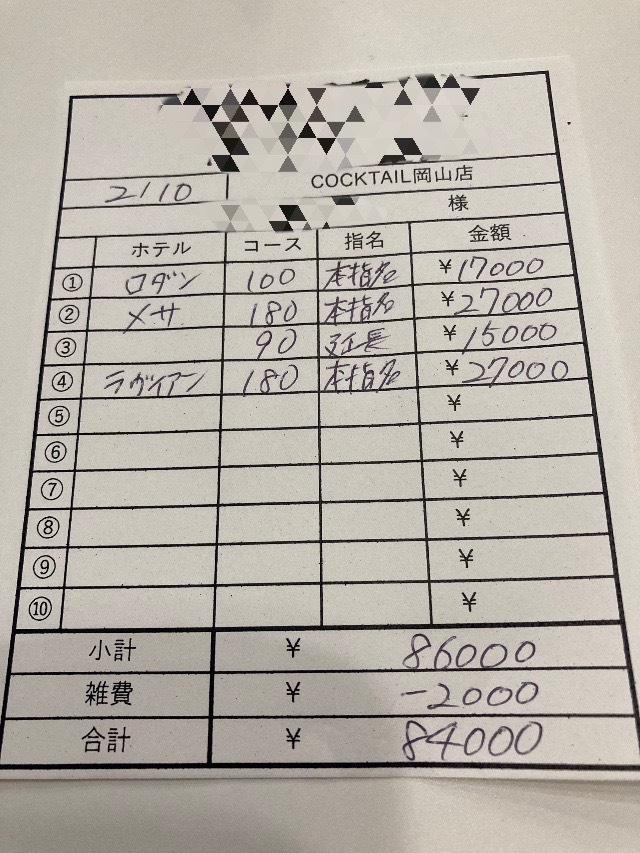 COCKTAIL岡山店
2/10
様
ホテル コース 指名 金額
① ロダン 100 本指名 ¥17000
② メサ 180 本指名 ¥27000
③ 90 延長 ¥15000
④ ラヴィアン 180 本指名 ¥27000
⑤ ¥
⑥ ¥
⑦ ¥
⑧ ¥
⑨ ¥
⑩ ¥
小計 ¥ 86000
雑費 ¥ -2000
合計 ¥ 84000